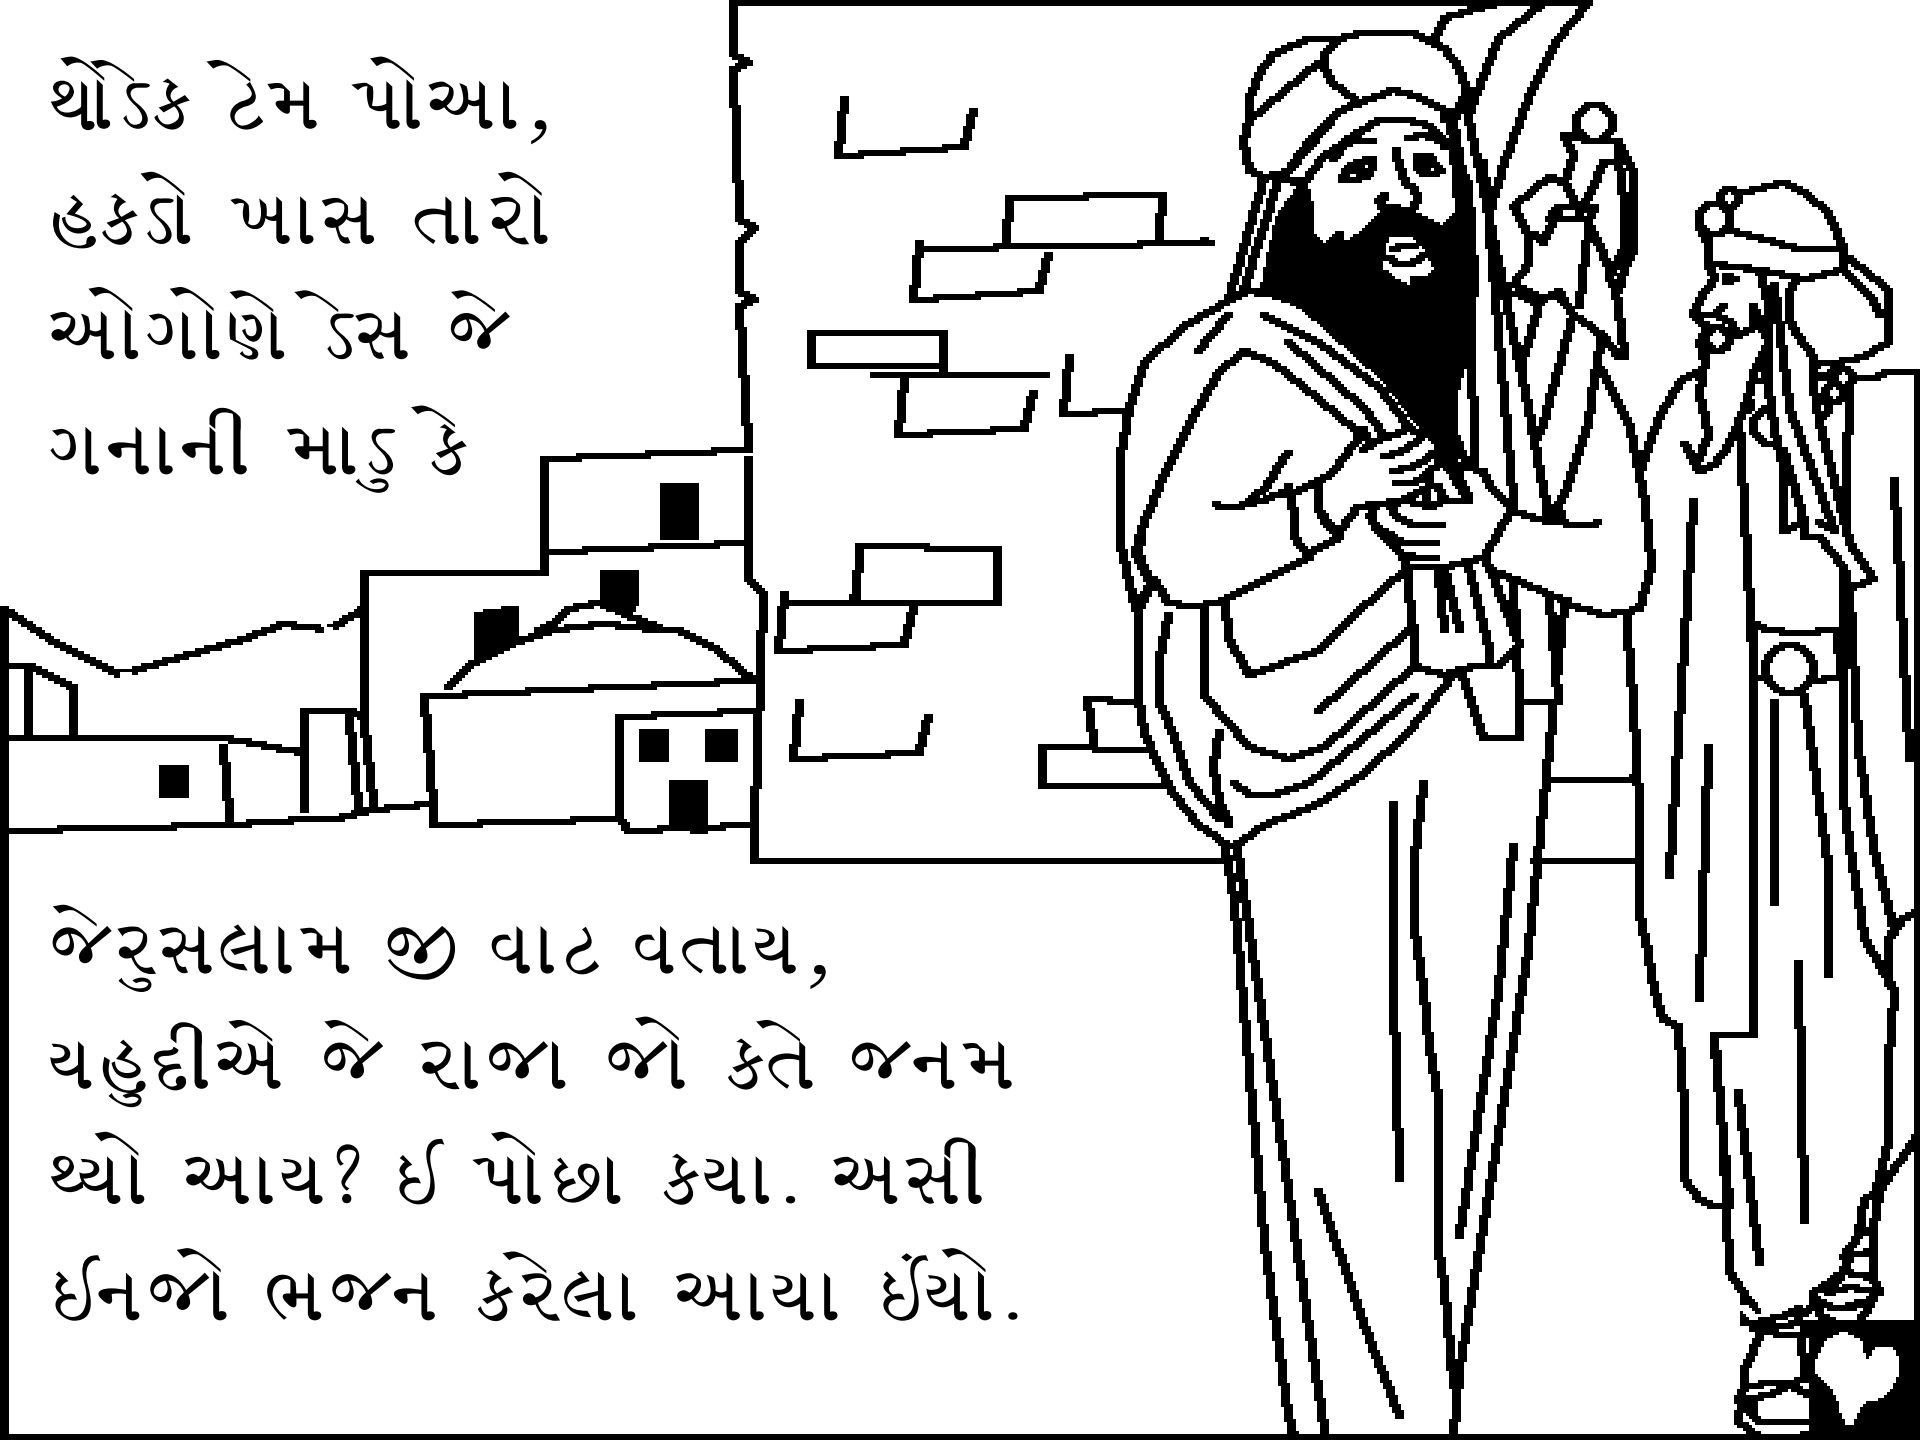 થોડેક ટેમ પોઆ,
હકડો ખાસ તારો
ઓગોણે ડેસ જે
ગનાની માડુ કે
જેરુસલામ જી વાટ વતાય,
યહુદીએ જે રાજા જો કેતે જનમ
થ્યો આય? ઈ પોછા કયા. અસી
ઈનજો ભજન કેરેલા આયા ઈંયો.